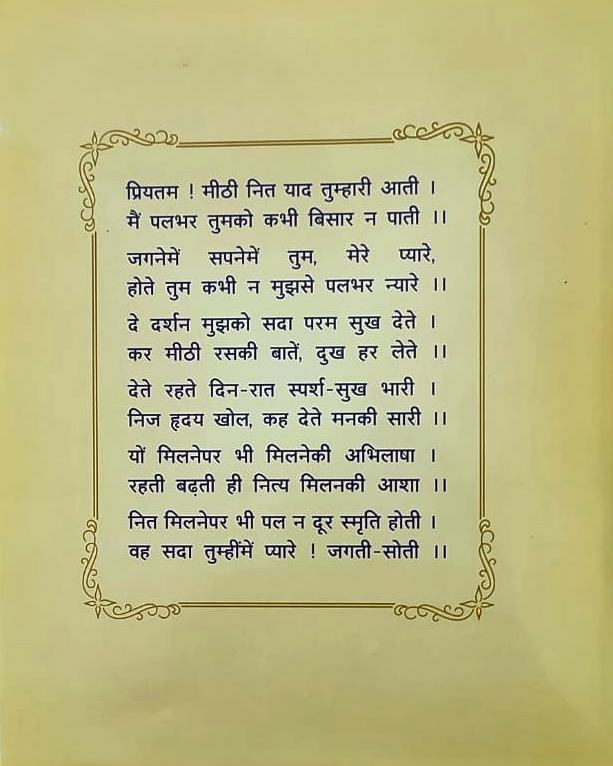 प्रियतम ! मीठी नित याद तुम्हारी आती ।
मैं पलभर तुमको कभी बिसार न पाती ।।
जगनेमें सपनेमें तुम, मेरे प्यारे,
होते तुम कभी न मुझसे पलभर न्यारे ।।
दे दर्शन मुझको सदा परम सुख देते ।
कर मीठी रसकी बातें, दुख हर लेते ।।
देते रहते दिन-रात स्पर्श-सुख भारी ।
निज हृदय खोल, कह देते मनकी सारी ।।
यों मिलनेपर भी मिलनेकी अभिलाषा ।
रहती बढ़ती ही नित्य मिलनकी आशा ।।
नित मिलनेपर भी पल न दूर स्मृति होती ।
वह सदा तुम्हींमें प्यारे ! जगती-सोती ।।